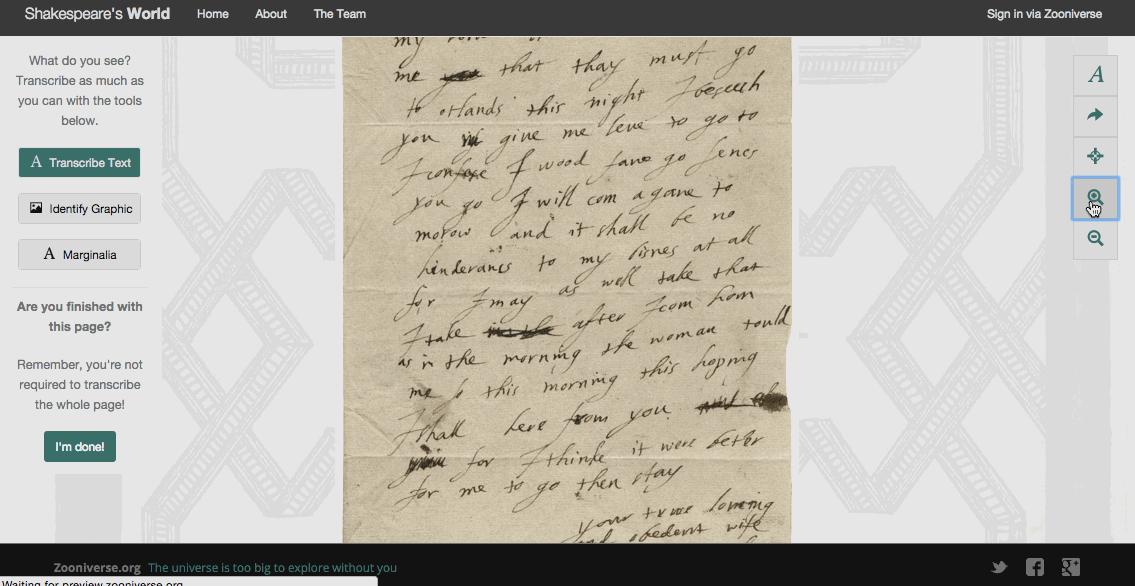 Shakespeare's World
Home
About
The Team
Sign in via Zooniverse
What do you see?
Transcribe as much as
you can with the tools
below.
A Transcribe Text
Identify Graphic
A Marginalia
Are you finished with
this page?
Remember, you're not
required to transcribe
the whole page!
I'm done!
my
me that thay must go
to orlands this night I beseech
you give me leve to go to
I confese I wood fane go sencs
you go I will com agane to
morow and it shall be no
hinderancs to my bisnes at all
for I may as well take that
I take after I com hom
as in the morning the woman tould
me so this morning this hoping
I shall here from you
for I thinke it were beter
for me to go then stay
your true loveing
and obedent wife
A
Zooniverse.org The universe is too big to explore without you
Waiting for preview.zooniverse.org